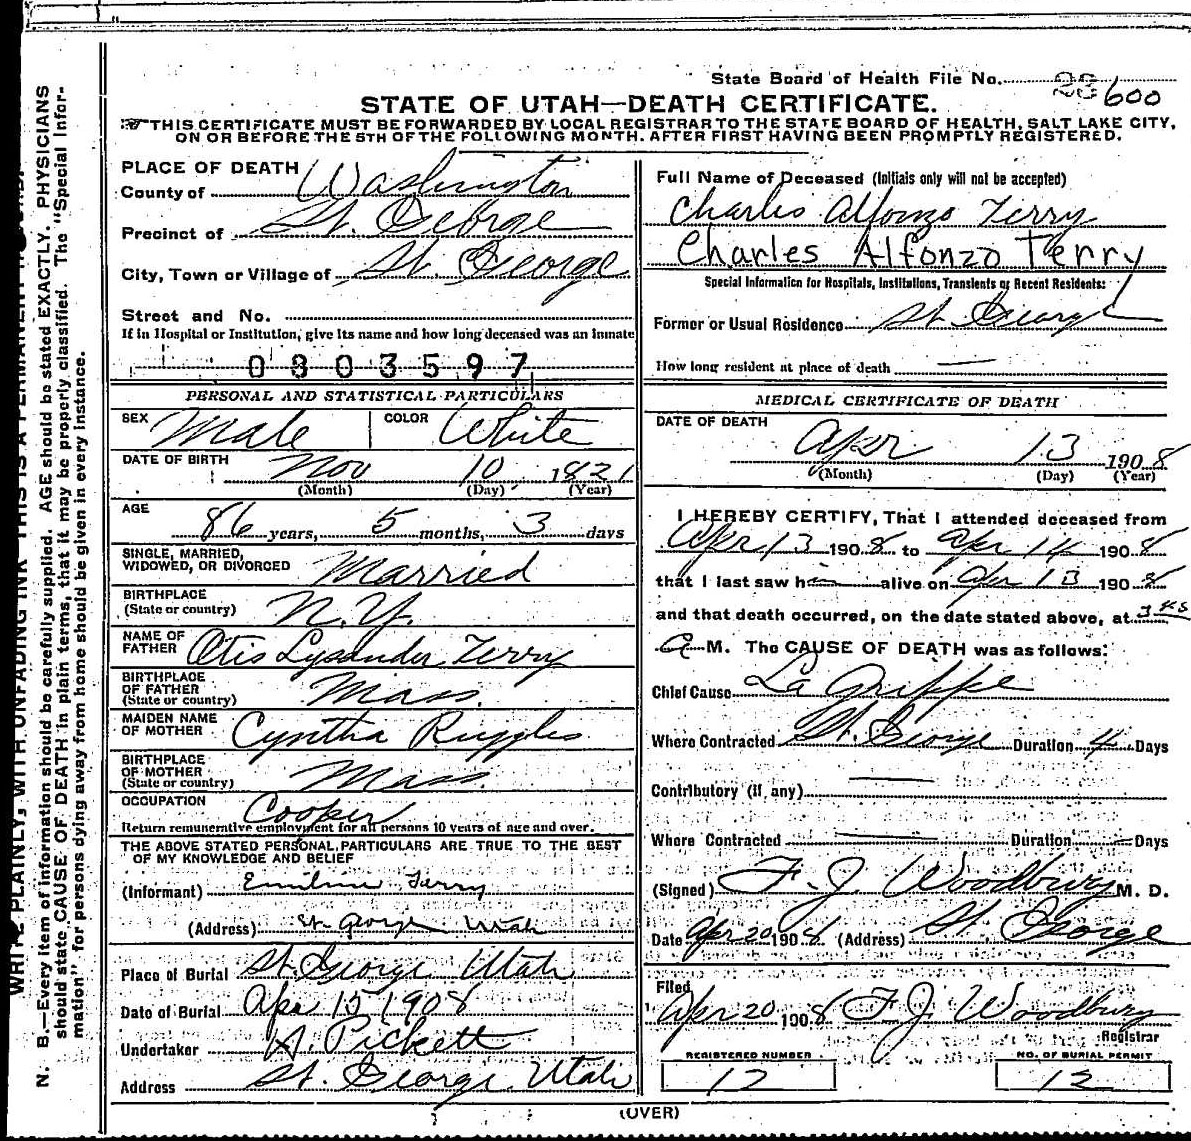 State Board of Health File No. 23 600
STATE OF UTAH—DEATH CERTIFICATE.
THIS CERTIFICATE MUST BE FORWARDED BY LOCAL REGISTRAR TO THE STATE BOARD OF HEALTH, SALT LAKE CITY,
ON OR BEFORE THE 5TH OF THE FOLLOWING MONTH. AFTER FIRST HAVING BEEN PROMPTLY REGISTERED.
PLACE OF DEATH
County of Washington
Precinct of St. George
City, Town or Village of St. George
Street and No.
If in Hospital or Institution, give its name and how long deceased was an inmate
0803597
PERSONAL AND STATISTICAL PARTICULARS
SEX Male COLOR White
DATE OF BIRTH Nov 10 1821
(Month) (Day) (Year)
AGE
86 years, 5 months, 3 days
SINGLE, MARRIED,
WIDOWED, OR DIVORCED Married
BIRTHPLACE
(State or country) N.Y.
NAME OF
FATHER Otis Lysander Terry
BIRTHPLACE
OF FATHER
(State or country) Mass.
MAIDEN NAME
OF MOTHER Cyntha Ruggles
BIRTHPLACE
OF MOTHER
(State or country) Mass.
OCCUPATION Cooper
Return remunerative employment for all persons 10 years of age and over.
THE ABOVE STATED PERSONAL PARTICULARS ARE TRUE TO THE BEST
OF MY KNOWLEDGE AND BELIEF
(Informant) Emiline Terry
(Address) St. George Utah
Place of Burial St. George Utah
Date of Burial Apr 15 1908
Undertaker A. Pickett
Address St. George Utah
Full Name of Deceased (Initials only will not be accepted)
Charles Alfonzo Terry
Charles Alfonzo Terry
Special Information for Hospitals, Institutions, Transients or Recent Residents:
Former or Usual Residence St. George
How long resident at place of death
MEDICAL CERTIFICATE OF DEATH
DATE OF DEATH
Apr 13 1908
(Month) (Day) (Year)
I HEREBY CERTIFY, That I attended deceased from
Apr 13 1908 to Apr 14 1908
that I last saw h alive on Apr 13 1908
and that death occurred, on the date stated above, at 3 45
A M. The CAUSE OF DEATH was as follows:
Chief Cause La Grippe
Where Contracted St. George Duration 4 Days
Contributory (if any)
Where Contracted Duration Days
(Signed) F. J. Woodbury M. D.
Date Apr 20 1908 (Address) St. George
Filed
Apr 20 1908 F. J. Woodbury
Registrar
REGISTERED NUMBER NO. OF BURIAL PERMIT
12 12
(OVER)
N. B.—Every item of information should be carefully supplied. AGE should be stated EXACTLY. PHYSICIANS
should state CAUSE OF DEATH in plain terms, that it may be properly classified. The "Special Infor-
mation" for persons dying away from home should be given in every instance.
WRITE PLAINLY, WITH UNFADING INK THIS IS A PERMANENT